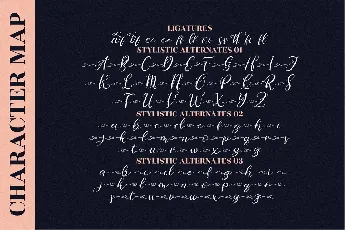 CHARACTER MAP
LIGATURES
STYLISTIC ALTERNATES 01
A B C D E F G H I J
K L M N O P Q R S
T U V W X Y Z
STYLISTIC ALTERNATES 02
a b c d e f g h i
j k l m n o p q r s
t u v w x y z
STYLISTIC ALTERNATES 03
a b c d e f g h i
j k l m n o p q r
s t u v w x y z